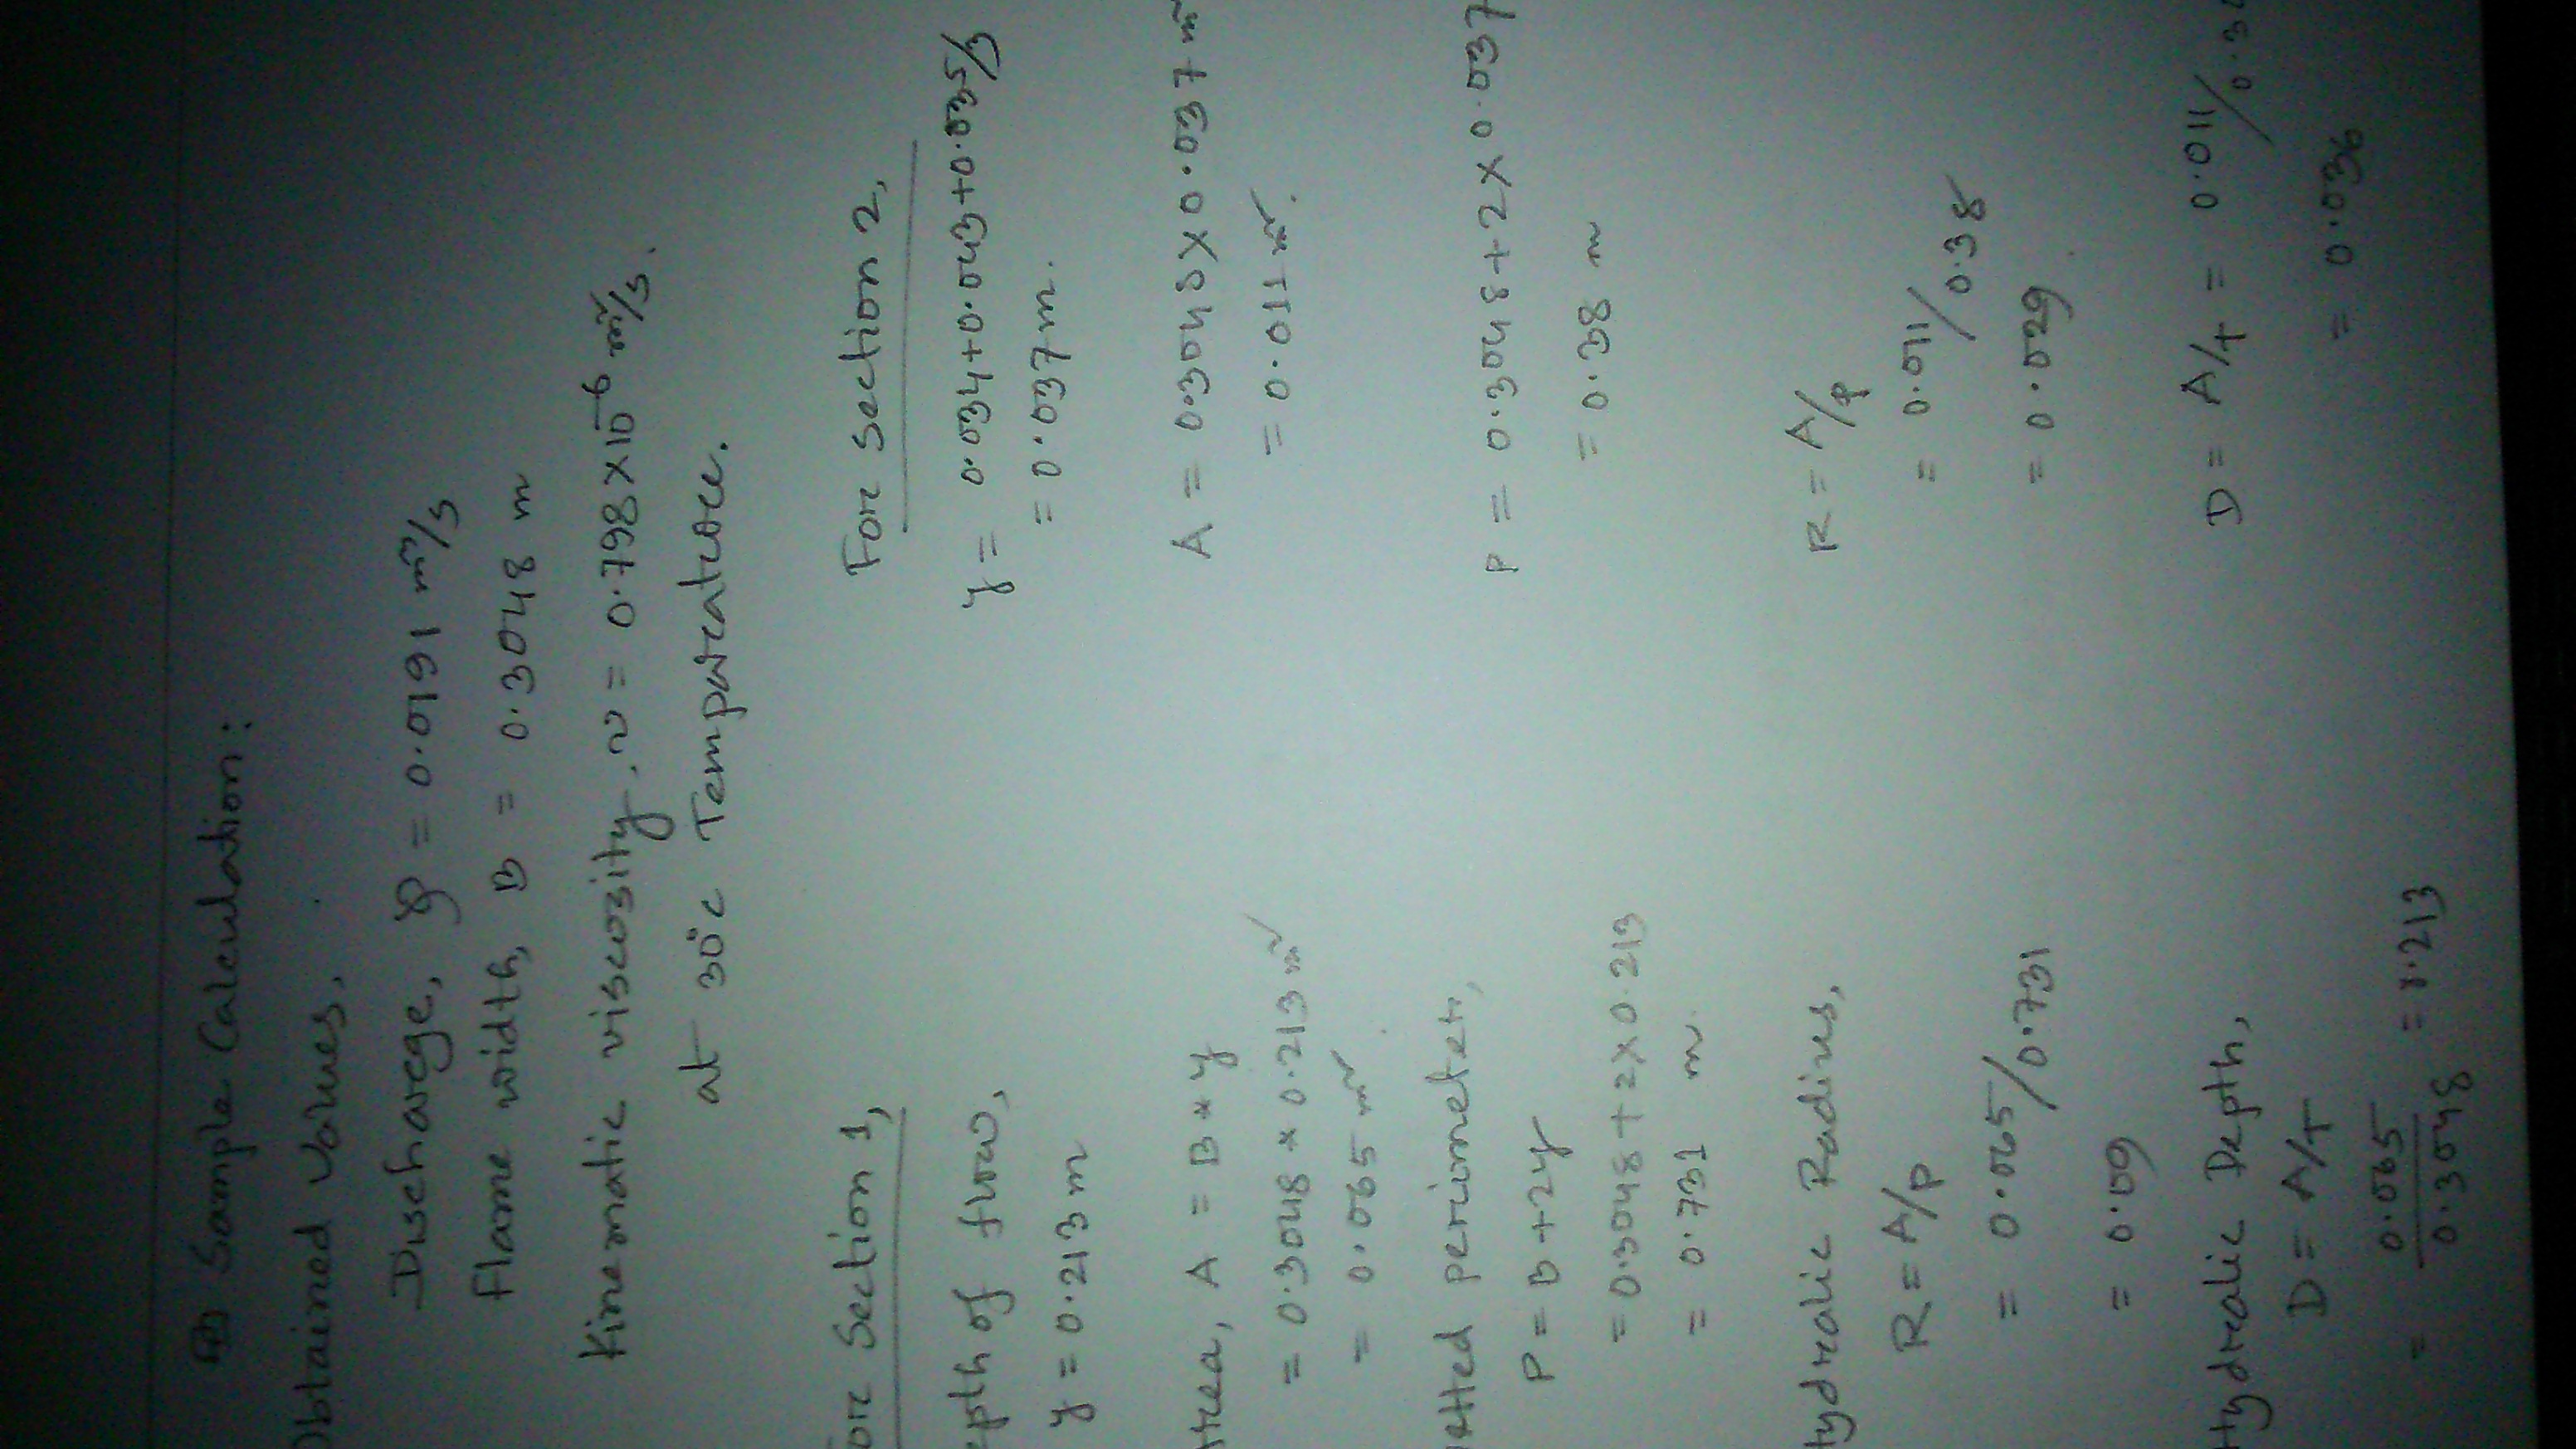 Sample Calculation:
Obtained values,
Discharge, Q = 0.0191 m³/s
Flame width, B = 0.3048 m
Kinematic viscosity, ν = 0.798×10⁻⁶ m²/s.
at 30°c Temparature.
For Section 1,
epth of flow,
y = 0.213 m
Area, A = B * y
= 0.3048 * 0.213 m²
= 0.065 m²
etted perimeter,
P = B + 2y
= 0.3048 + 2×0.213
= 0.731 m
Hydralic Radius,
R = A/P
= 0.065/0.731
= 0.09
Hydralic Depth,
D = A/T
= 0.065/0.3048 = 0.213
For section 2,
y = 0.034+0.043+0.035/3
= 0.037 m.
A = 0.3048 × 0.037 m²
= 0.011 m².
P = 0.3048 + 2 × 0.037
= 0.38 m
R = A/P
= 0.011/0.38
= 0.029
D = A/T = 0.011/0.30
= 0.036